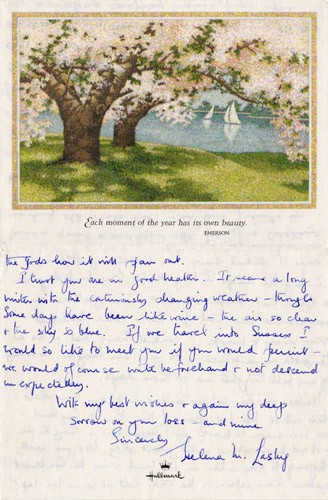 Each moment of the year has its own beauty.
EMERSON
the Gods how it will pan out.
I trust you are in good health. It seems a long
winter with the continuously changing weather - though
some days have been like wine - the air so clear
& the sky so blue. If we travel into Sussex I
would so like to meet you if you would permit -
we would of course write beforehand & not descend
unexpectedly.
With my best wishes & again my deep
sorrow on your loss - and mine
Sincerely
M.
Hallmark